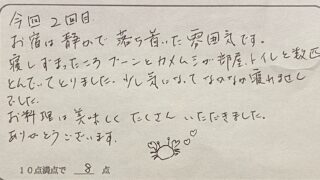 今回2回目
お宿は静かで落ち着いた雰囲気です。
寝しずまったころブーンとカメムシが部屋、トイレと数匹
とんでいてとりました。少し気になってなかなか寝れません
でした。
お料理は美味しくたくさんいただきました。
ありがとうございます。
10点満点で 8 点